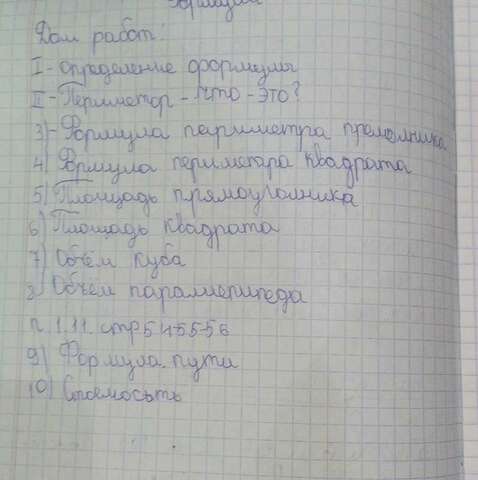 Формулы
Дом работ:
I - определение формулы
II - Периметор - что - это?
3) - Формула париметра прямолника
4) Формула периметора квадрата
5) Площадь прямоуголника
6) Площадь квадрата
7) Объём куба
8) Объём паралиепипеда
п. 1.11. стр 54-55-56
9) Формула пути
10) Стоемосьть